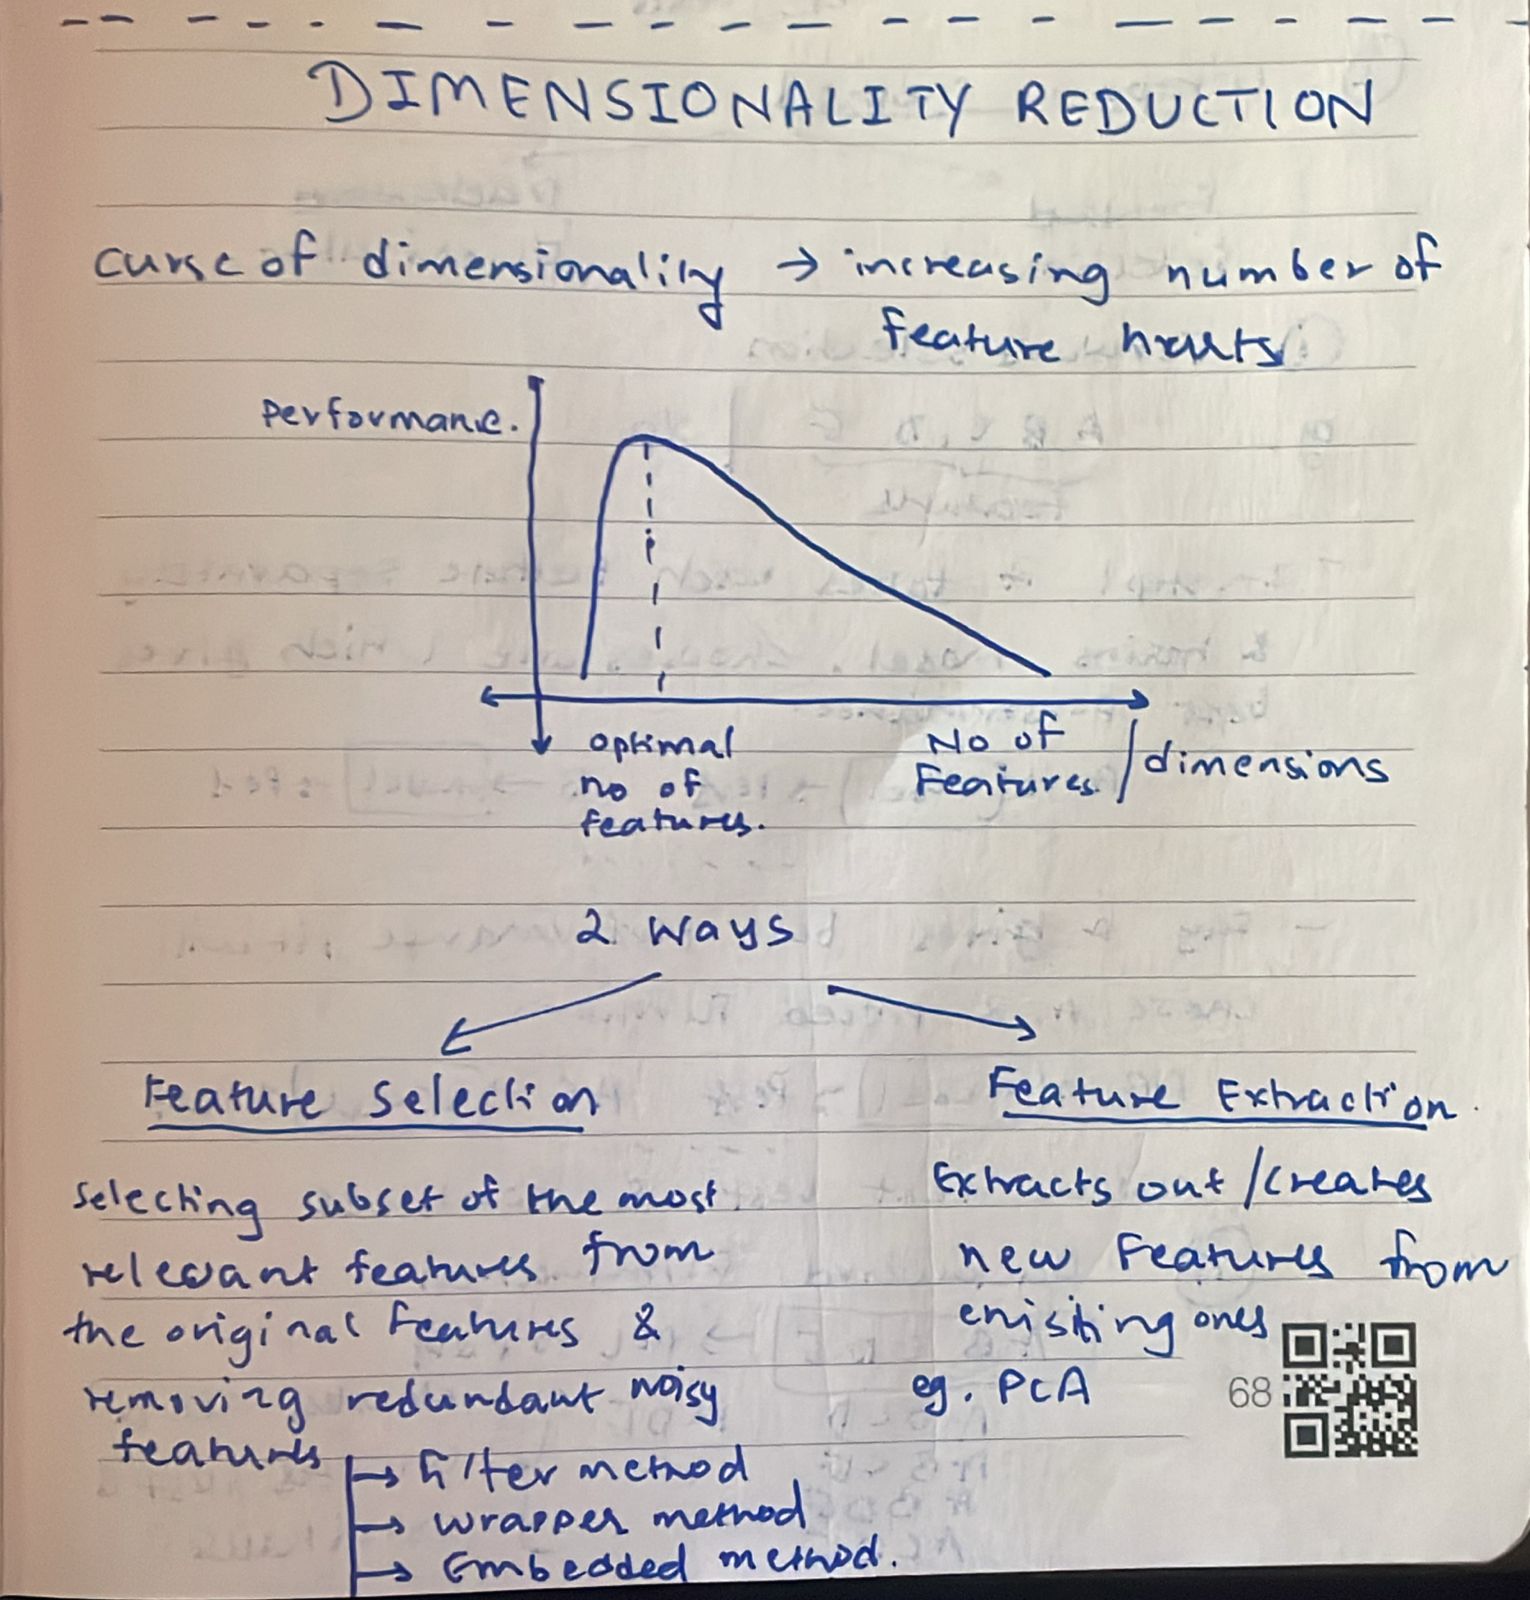 DIMENSIONALITY REDUCTION
curse of dimensionality → increasing number of
feature hurts
Performance.
optimal
no of
features.
No of
Features / dimensions
2 ways
Feature Selection
Selecting subset of the most
relevant features from
the original features &
removing redundant noisy
features
→ filter method
→ wrapper method
→ Embedded method.
Feature Extraction
Extracts out / creates
new features from
existing ones
eg. PCA
68